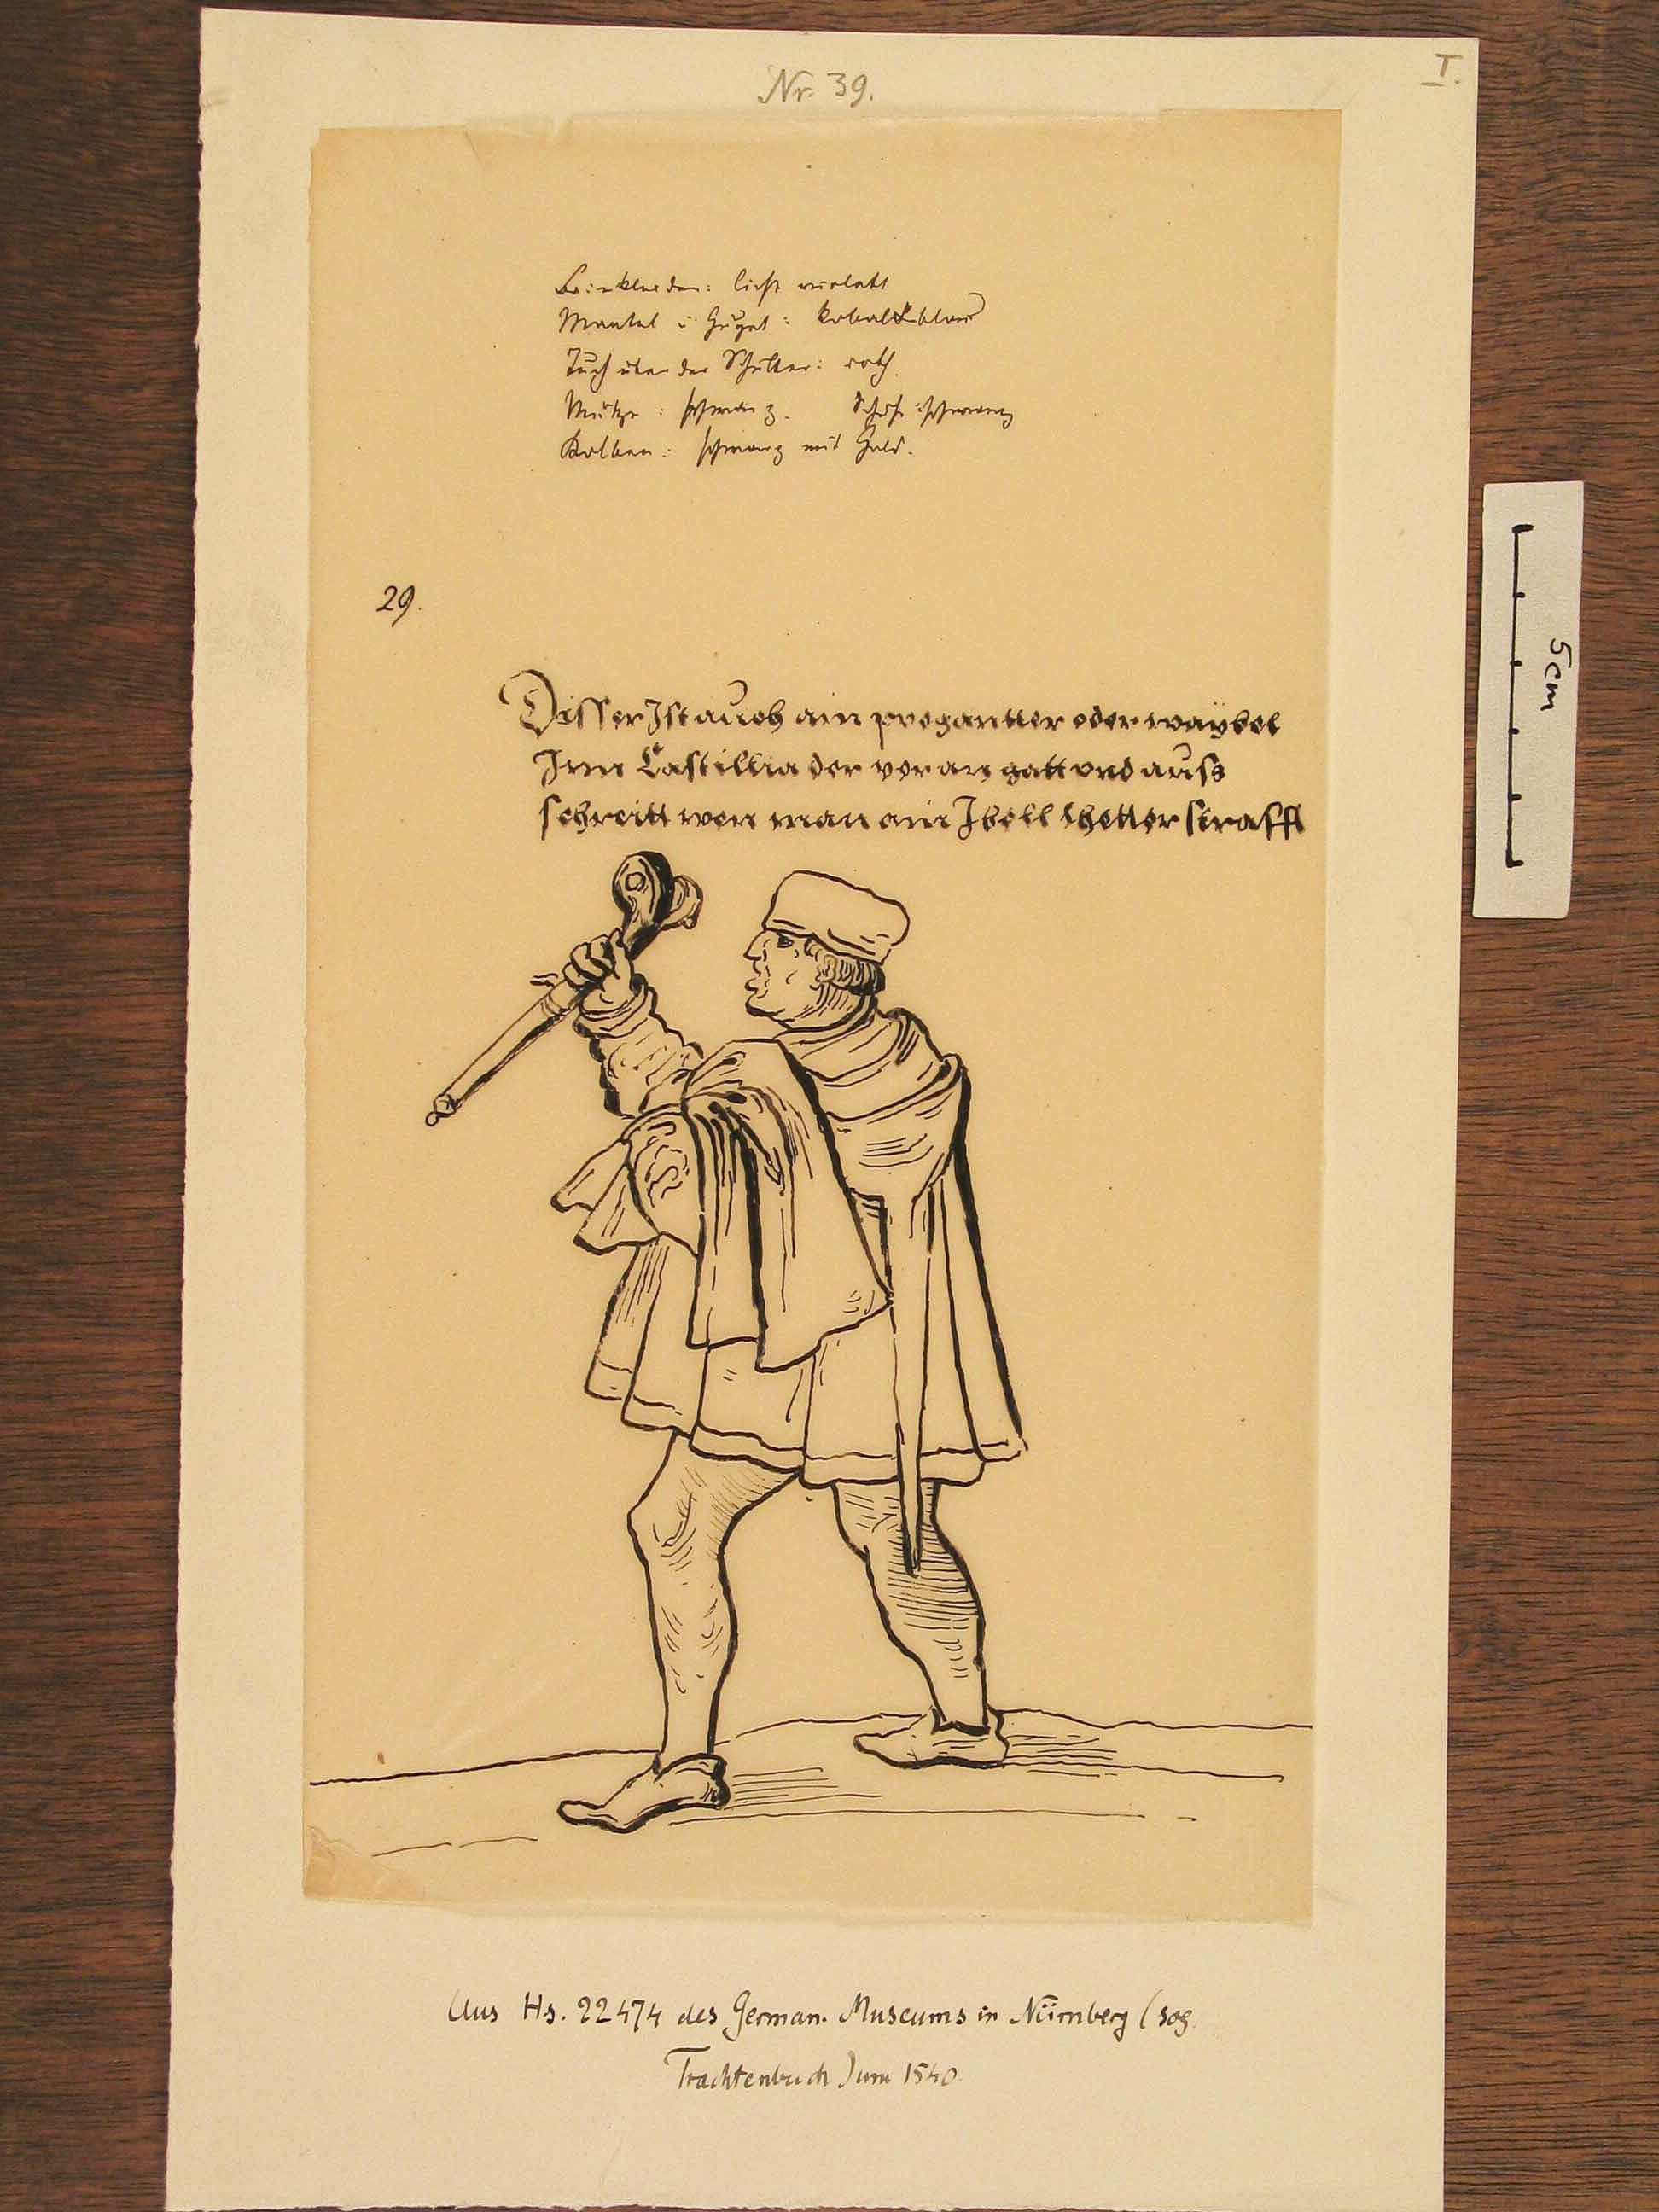 Nr. 39.
I.
Beinkleider: licht violett
Mantel u. Gugel: kobaltblau
Tuch über der Schulter: roth.
Mütze: schwarz. Schuhe: schwarz
Kolben: schwarz mit Gold.
29.
Disser Ist auch ain progantter oder waybel
Inn Castillia der vor an gatt vnd auss
schreitt wen man ain Ibell thetter strafft
5 cm
Aus Hs. 22474 des German. Museums in Nürnberg (sog.
Trachtenbuch) um 1540.